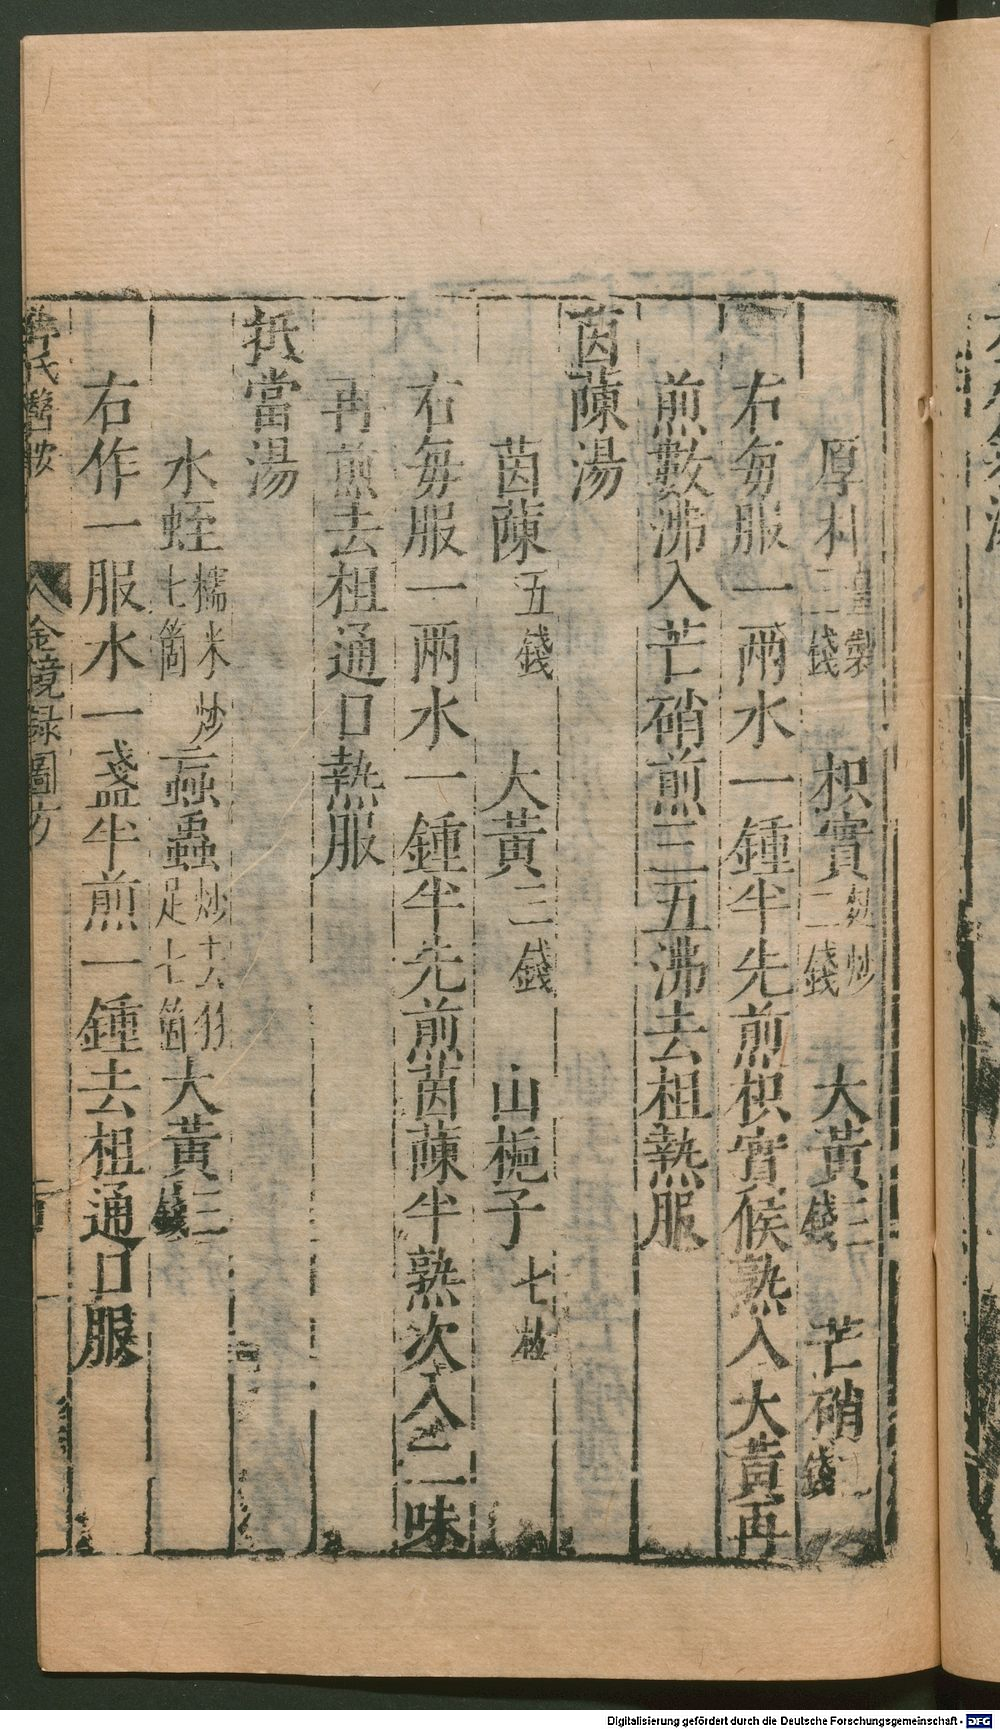 厚朴薑製二錢　枳實麩炒二錢　大黃三錢　芒硝二錢
右每服一兩水一鍾半先煎枳實候熟入大黃再
煎數沸入芒硝煎三五沸去柤熱服
茵蔯湯
茵蔯五錢　大黃三錢　山梔子七枚
右每服一兩水一鍾半先煎茵蔯半熟次入二味
再煎去柤通口熱服
抵當湯
水蛭糯米炒七箇　䖟蟲炒去翅足七箇　大黃三錢
右作一服水一盞半煎一鍾去柤通口服
薛氏醫按　金鏡錄圖方
Digitalisierung gefördert durch die Deutsche Forschungsgemeinschaft - DFG